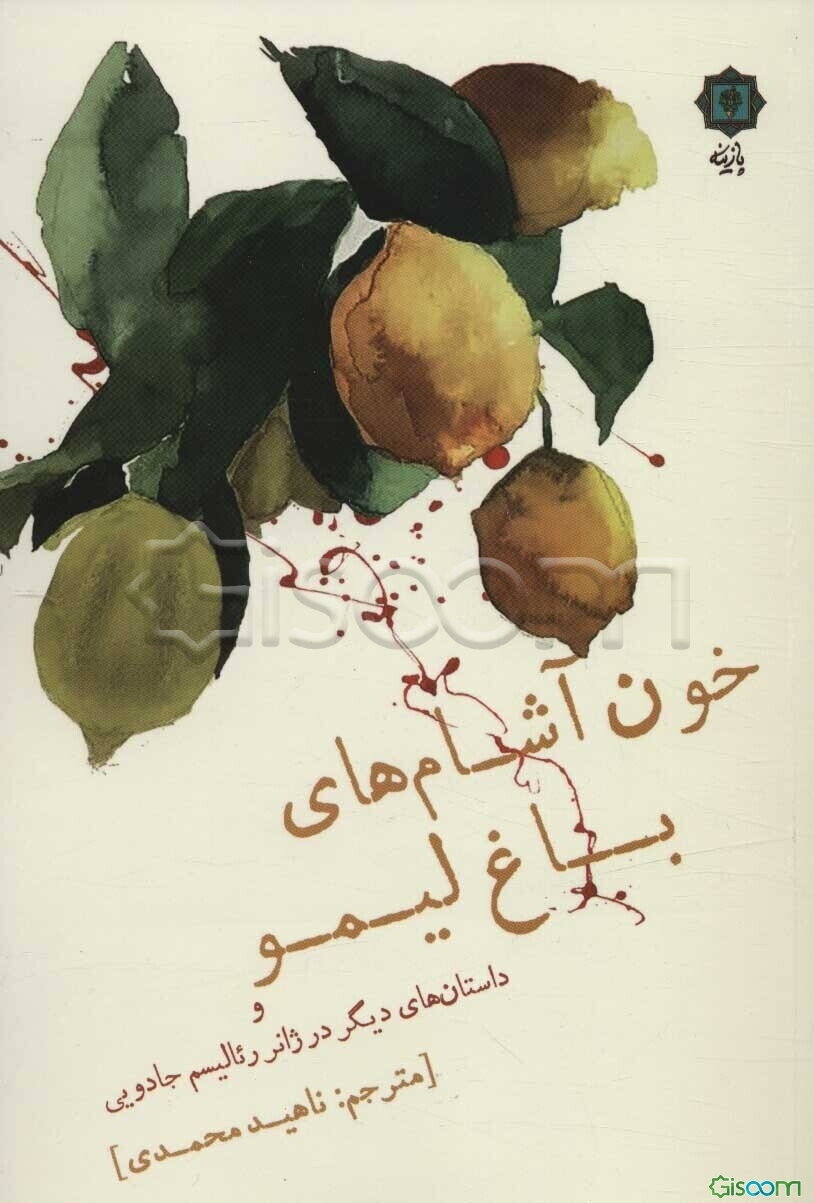 پازینه
Gisoom
خون آشام‌های
باغ لیمو
و
داستان‌های دیگر در ژانر رئالیسم جادویی
[مترجم: ناهید محمدی]
Gisoom